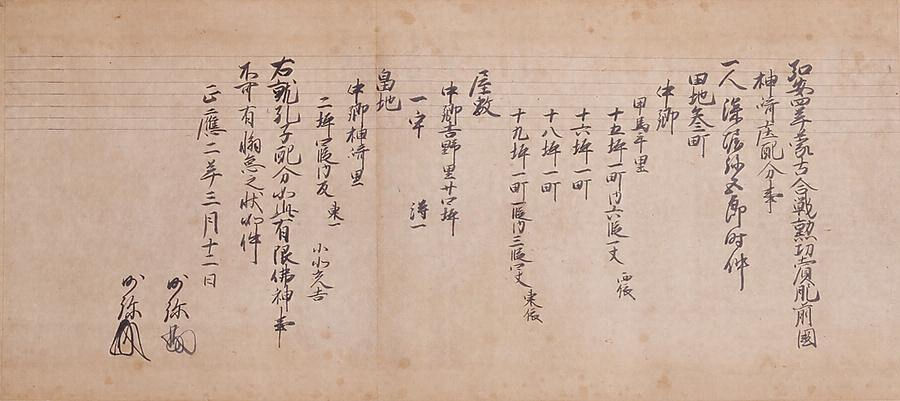 弘安四年蒙古合戦勲功賞肥前國
神崎庄配分事
一人 深堀弥五郎時仲
田地参町
中郷
田馬平里
十五坪一町内六段一丈 西依
十六坪一町
十八坪一町
十九坪一町一段内三段四丈 東依
屋敷
中郷吉野里廿四坪
一宇
畠地
中郷神崎里
二坪四段内二反 東一
右就孔子配分如此有限佛神事
不可有懈怠之状如件
正應二年三月十二日
沙弥
沙弥